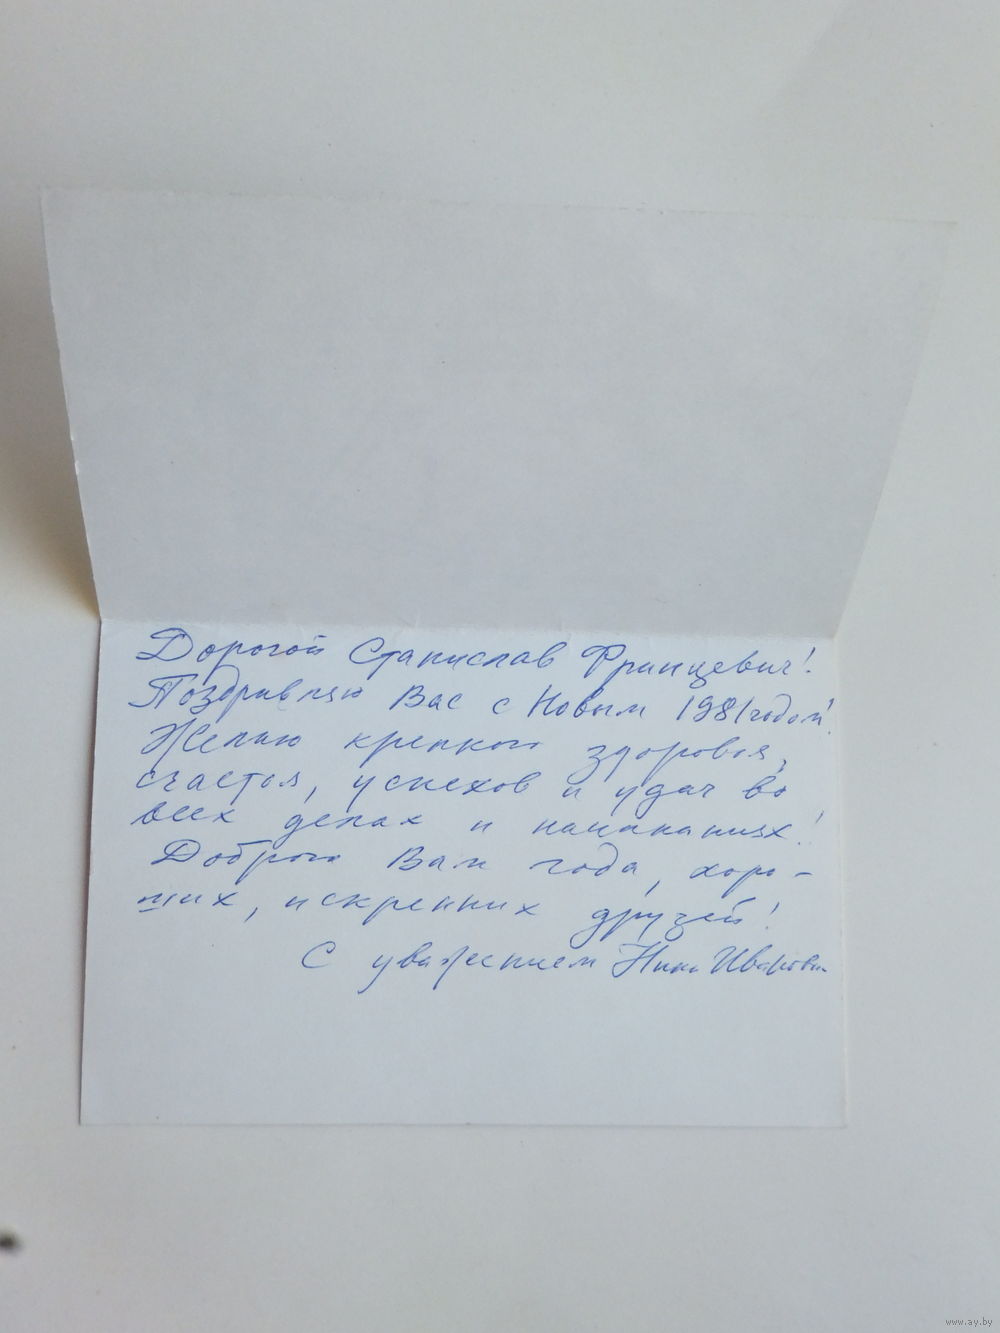 Дорогой Станислав Францевич!
Поздравляю Вас с Новым 1981 годом!
Желаю крепкого здоровья,
счастья, успехов и удач во
всех делах и начинаниях!
Доброго Вам года, хоро-
ших, искренних друзей!
С уважением Нина Ивановна
www.ay.by